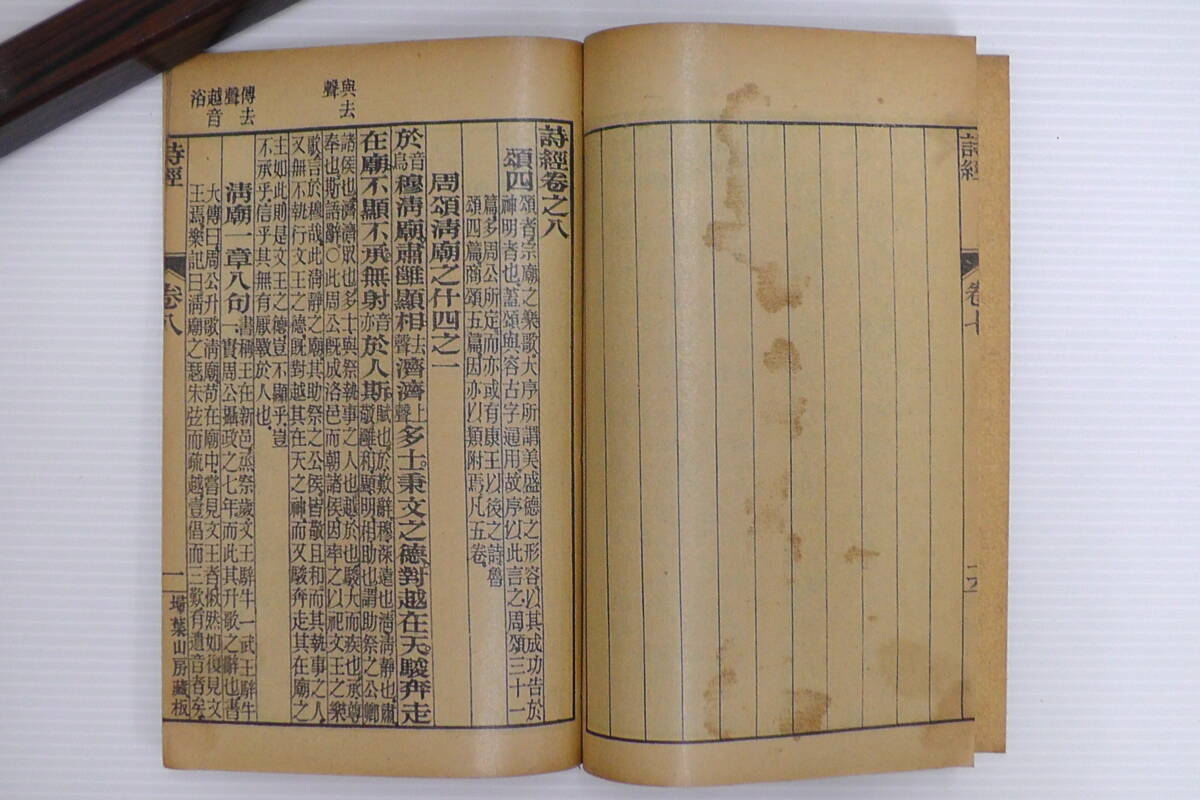 詩經
卷七
與去
聲
傳去
聲
越音
浴
詩經卷之八
頌四
頌者宗廟之樂歌大序所謂美盛德之形容以其成功告於
神明者也蓋頌與容古字通用故序以此言之周頌三十一
篇多周公所定而亦或有康王以後之詩魯
頌四篇商頌五篇因亦以類附焉凡五卷
周頌清廟之什四之一
於音烏穆清廟肅雝顯相去聲濟濟上聲多士秉文之德對越在天駿奔走
在廟不顯不承無射音亦於人斯
賦也於歎辭穆深遠也清清靜也肅
敬雝和顯明相助也謂助祭之公卿
諸侯也濟濟眾也多士與祭執事之人也越於也駿大而疾也承尊
奉也斯語辭○此周公既成洛邑而朝諸侯因率之以祀文王之樂
歌言於穆哉此清靜之廟其助祭之公侯皆敬且和而其執事之人
又無不執行文王之德既對越其在天之神而又駿奔走其在廟之
主如此則是文王之德豈不顯乎豈
不承乎信乎其無有厭斁於人也
清廟一章八句
書稱王在新邑烝祭歲文王騂牛一武王騂牛
一實周公攝政之七年而此其升歌之辭也書
大傳曰周公升歌清廟苟在廟中嘗見文王者愀然如復見文
王焉樂記曰清廟之瑟朱弦而疏越壹倡而三歎有遺音者矣
詩經
卷八
一
埽葉山房藏板